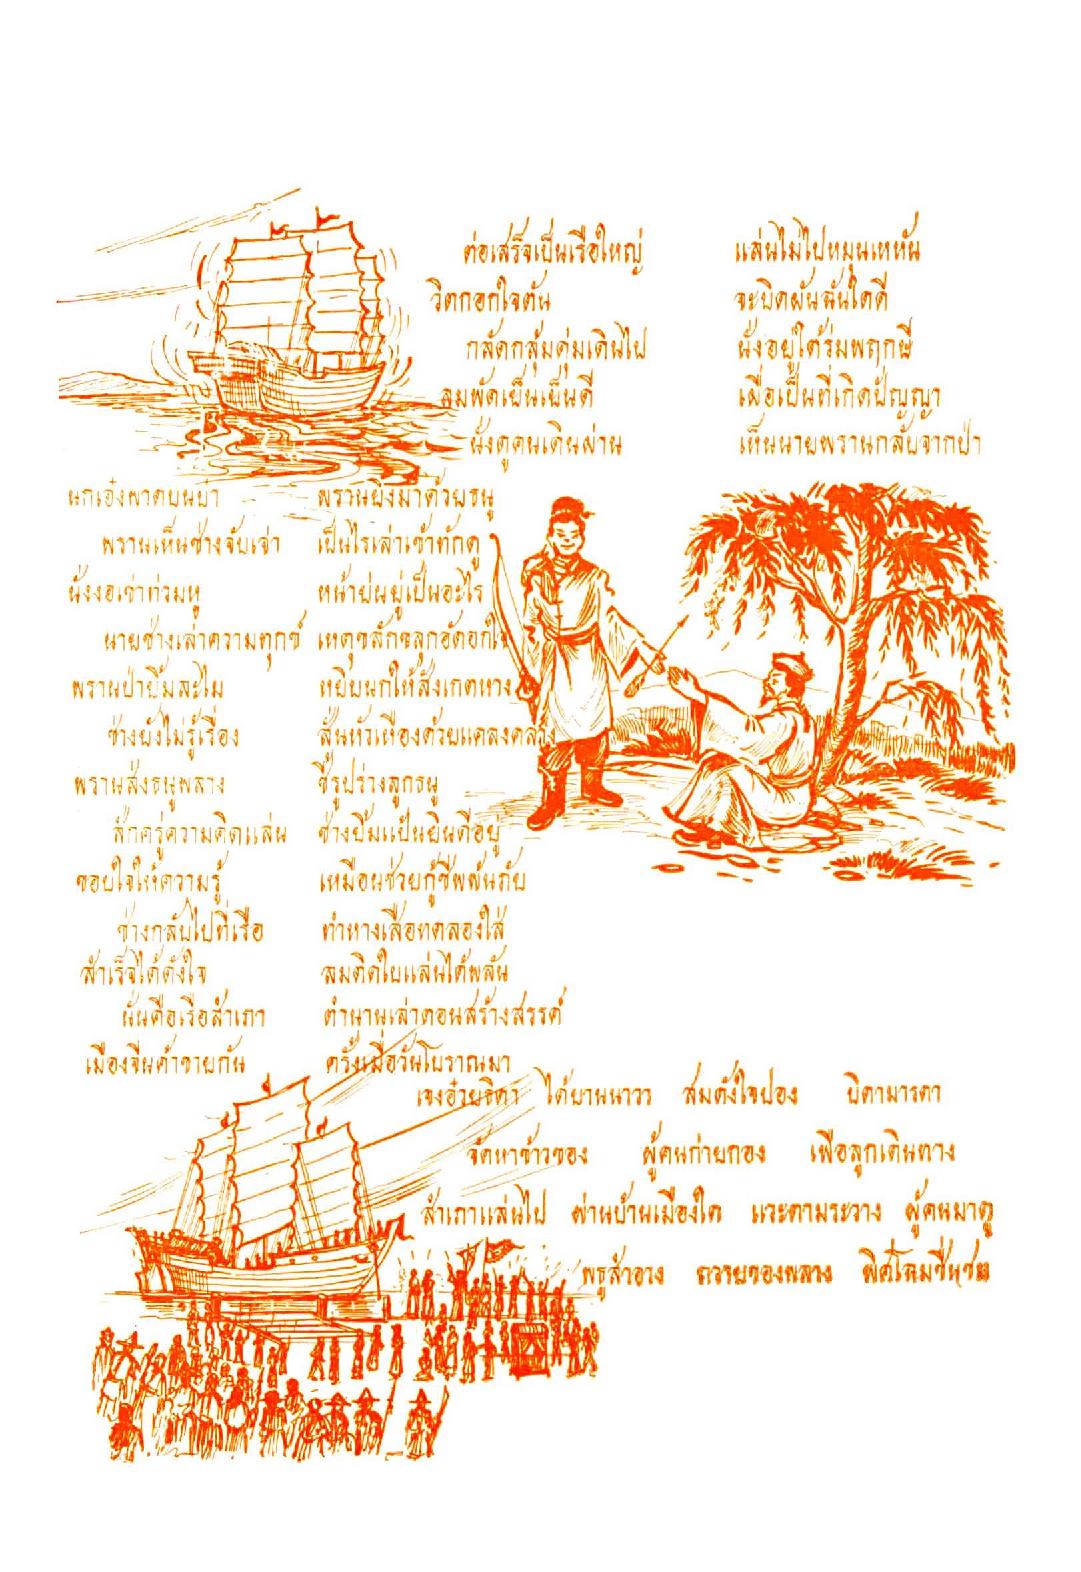 ต่อเสร็จเป็นเรือใหญ่ แล่นไม่ไปหมุนเหหัน
วิตกอกใจตัน จะบิดผันฉันใดดี
กลัดกลุ้มดุ่มเดินไป นั่งอยู่ใต้ร่มพฤกษี
ลมพัดเย็นเย็นดี เผื่อเป็นที่เกิดปัญญา
นั่งดูคนเดินผ่าน เห็นนายพรานกลับจากป่า
นกเอี้ยงพาดบนบ่า พรานยิงมาด้วยธนู
พรานเห็นช่างจับเจ่า เป็นไรเล่าเข้าทักดู
นั่งงอเข่าท่วมหู หน้าย่นยู่เป็นอะไร
นายช่างเล่าความทุกข์ เหตุขลักขลุกอัดอกใจ
พรานป่ายิ้มละไม หยิบนกให้สังเกตหาง
ช่างยังไม่รู้เรื่อง สั่นหัวเหืองด้วยแคลงคลาง
พรานส่งธนูพลาง ชี้รูปร่างลูกธนู
สักครู่ความคิดแล่น ช่างยิ้มแป้นยินดีอยู่
ขอบใจให้ความรู้ เหมือนช่วยกู้ชีพพ้นภัย
ช่างกลับไปที่เรือ ทำหางเสือทดลองใส่
สำเร็จได้ดังใจ ลมติดใบแล่นได้พลัน
นั่นคือเรือสำเภา ตำนานเล่าตอนสร้างสรรค์
เมืองจีนค้าขายกัน ครั้งเมื่อวันโบราณมา
เจงอ๋วยธิดา ได้ยานนาวา สมดังใจปอง บิดามารดา
จัดหาข้าวของ ผู้คนก่ายกอง เพื่อลูกเดินทาง
สำเภาแล่นไป ผ่านบ้านเมืองใด แวะตามระวาง ผู้คนมาดู
พธูสำอาง ถวายของพลาง พิศโฉมชื่นชม